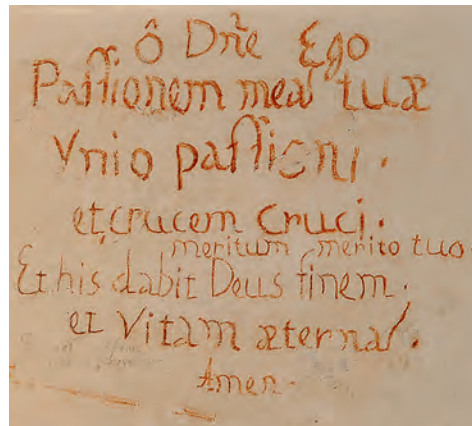 ô Dñe Ego
Paſſionem meā tuæ
Vnio paſſioni.
et crucem Cruci.
meritum merito tuo
Et his dabit Deus finem.
et Vitam æternā.
Amen.